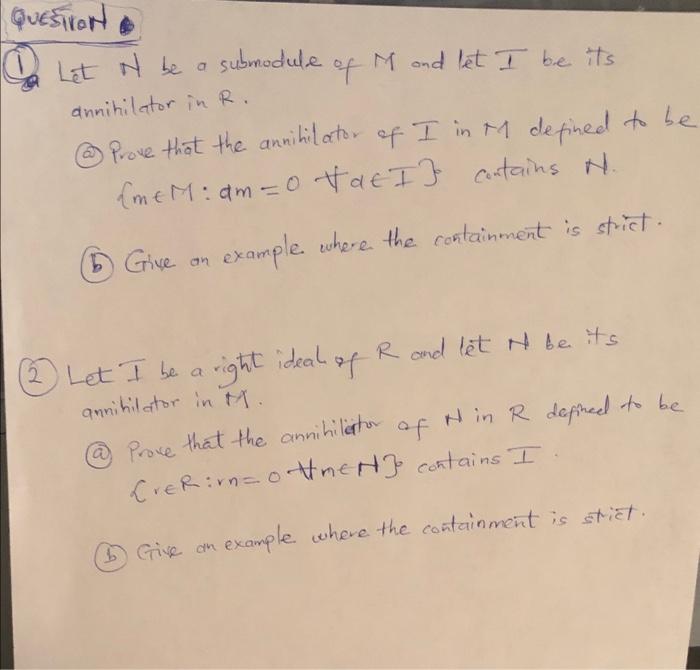 QUESTION
① Let N be a submodule of M and let I be its
annihilator in R.
ⓐ Prove that the annihilator of I in M defined to be
{m∈M : am = 0 ∀a∈I} contains N.
ⓑ Give an example where the containment is strict.
② Let I be a right ideal of R and let N be its
annihilator in M.
ⓐ Prove that the annihilator of N in R defined to be
{r∈R : rn = 0 ∀n∈N} contains I.
ⓑ Give an example where the containment is strict.